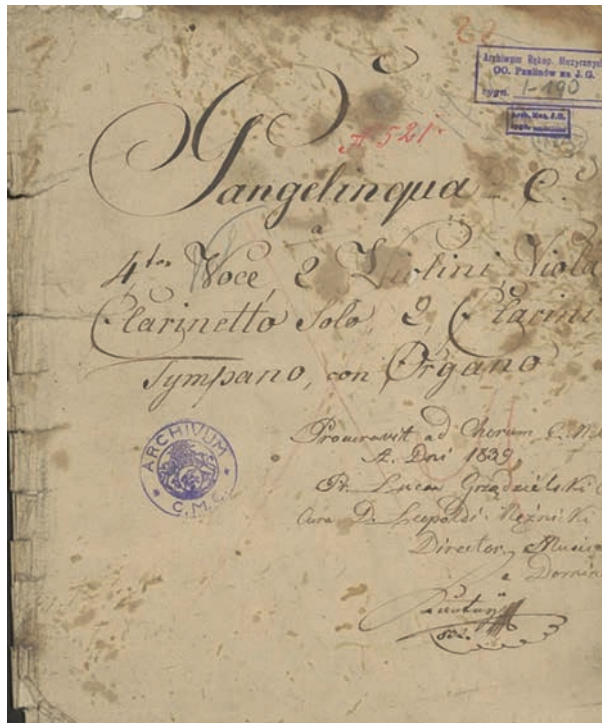 22
Archiwum Rękop. Muzycznych
OO. Paulinów na J. G.
sygn. I-190
Arch. Muz. J.G.
A 521
Pangelinqua C.
a
4tor Voce, 2 Violini, Viola
Clarinetto Solo, 2, Clarini
Tympano, con Organo
ARCHIVUM
C.M.C.
Procuravit ad Chorum C.
A. Dni 1839
Pr. Lucas Grządzielski
Cura D. Leopoldi
Director Musices
a